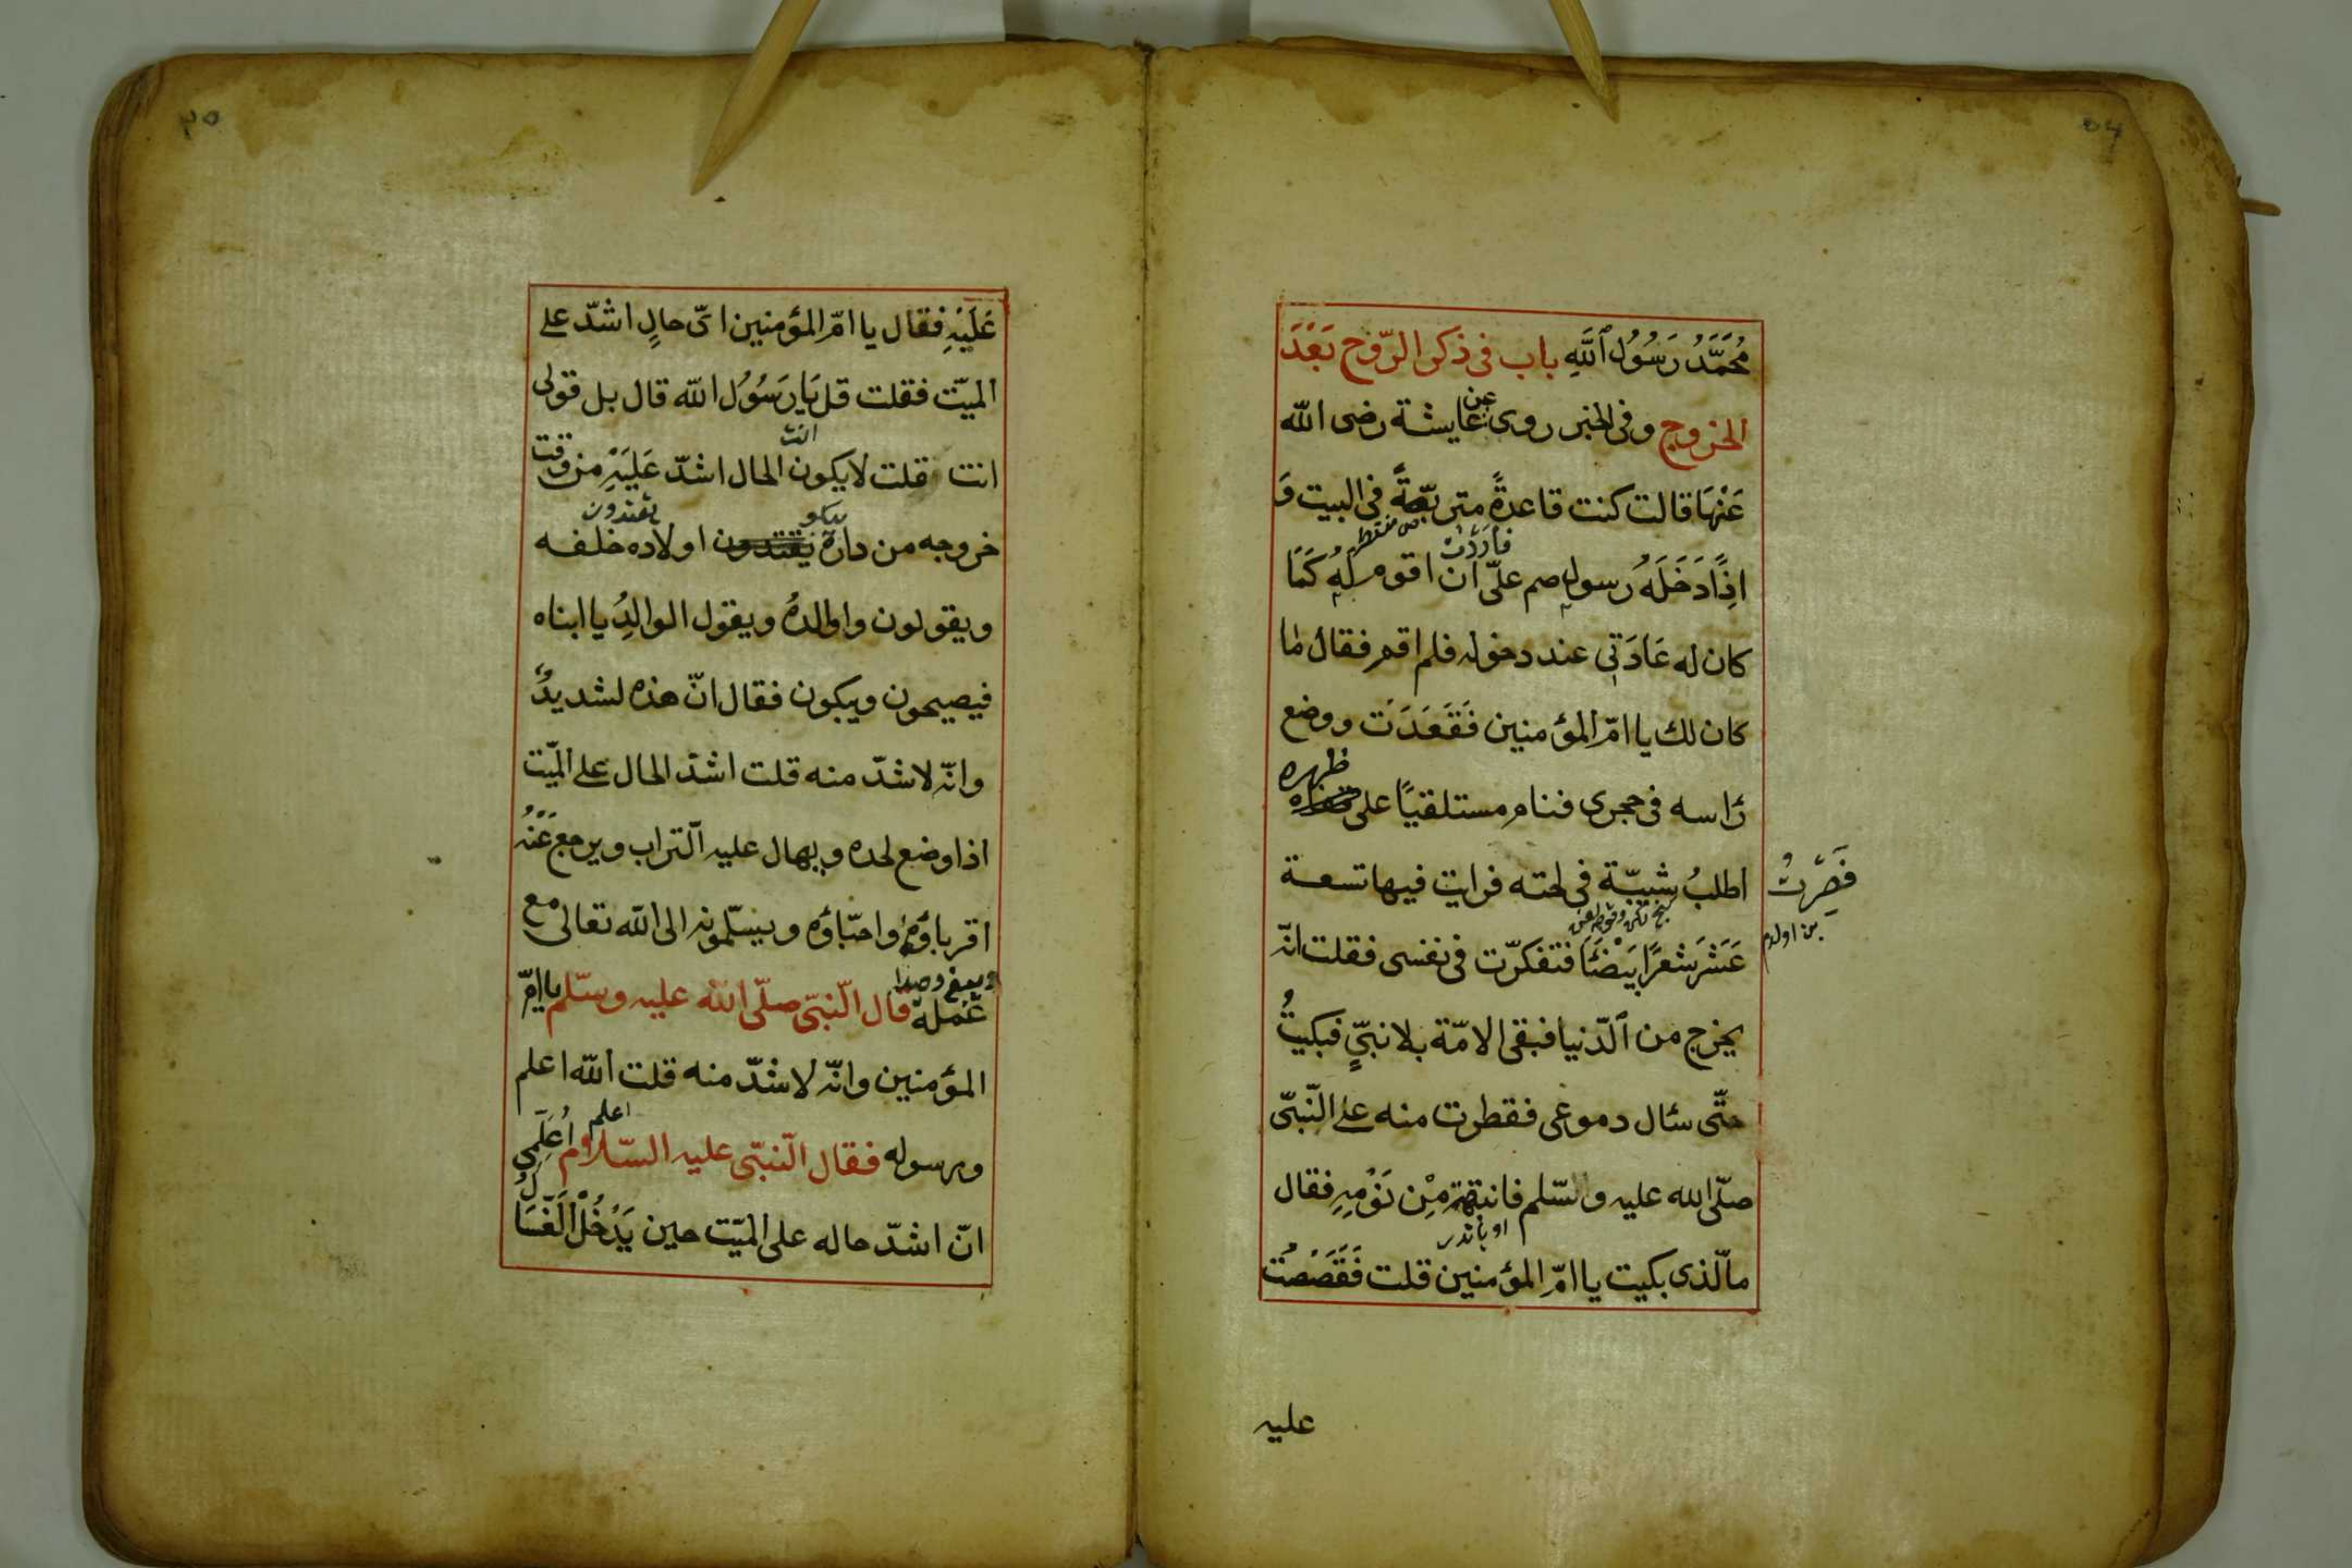 محمّد رسول الله باب فى ذكر الرّوح بعد
الخروج وفى الخبر روى عن عايشة رضى الله
عنها قالت كنت قاعدة متربّعة فى البيت و
فاردت
اذا دخله رسول صم علىّ ان اقوم له كما
كان له عادتى عند دخوله فلم اقم فقال لما
كان لك يا امّ المؤمنين فقعدت ووضع
رأسه فى حجرى فنام مستلقيًا على ظهره
فصرت
بن اولدم
اطلب شيبّة فى لحته فرايت فيها تسعة
عشر شعرًا بيضًا فتفكرّت فى نفسى فقلت انّه
يخرج من الدّنيا فبقى الامّة بلا نبىّ فبكيت
حتّى سئال دموعى فقطرت منه على النّبىّ
صلّى الله عليه وسّلم فانتبه من نومه فقال
مالّذى بكيت يا امّ المؤمنين قلت فقصصت
عليه
٣٥
عليه فقال يا امّ المؤمنين اىّ حال اشدّ على
الميّت فقلت قل يا رسول الله قال بل قولى
انت
انت قلت لا يكون الحال اشدّ عليه من وقت
خروجه من داره يقتدون اولاده خلفه
ويقولون واوالده ويقول الوالد يا ابناه
فيصيحون ويبكون فقال انّ هذه لشديد
وانّه لاشدّ منه قلت اشدّ الحال على الميّت
اذا وضع لحده ويهال عليه التّراب ويرجع عنه
اقرباؤه واحبّاؤه ويسلّمونه الى الله تعالى مع
عمله قال النّبىّ صلّى الله عليه وسّلم يا امّ
المؤمنين وانّه لاشدّ منه قلت الله اعلم
اعلم
ورسوله فقال النّبىّ عليه السّلام اعلمى
انّ اشدّ حاله على الميّت حين يدخل الغسّال